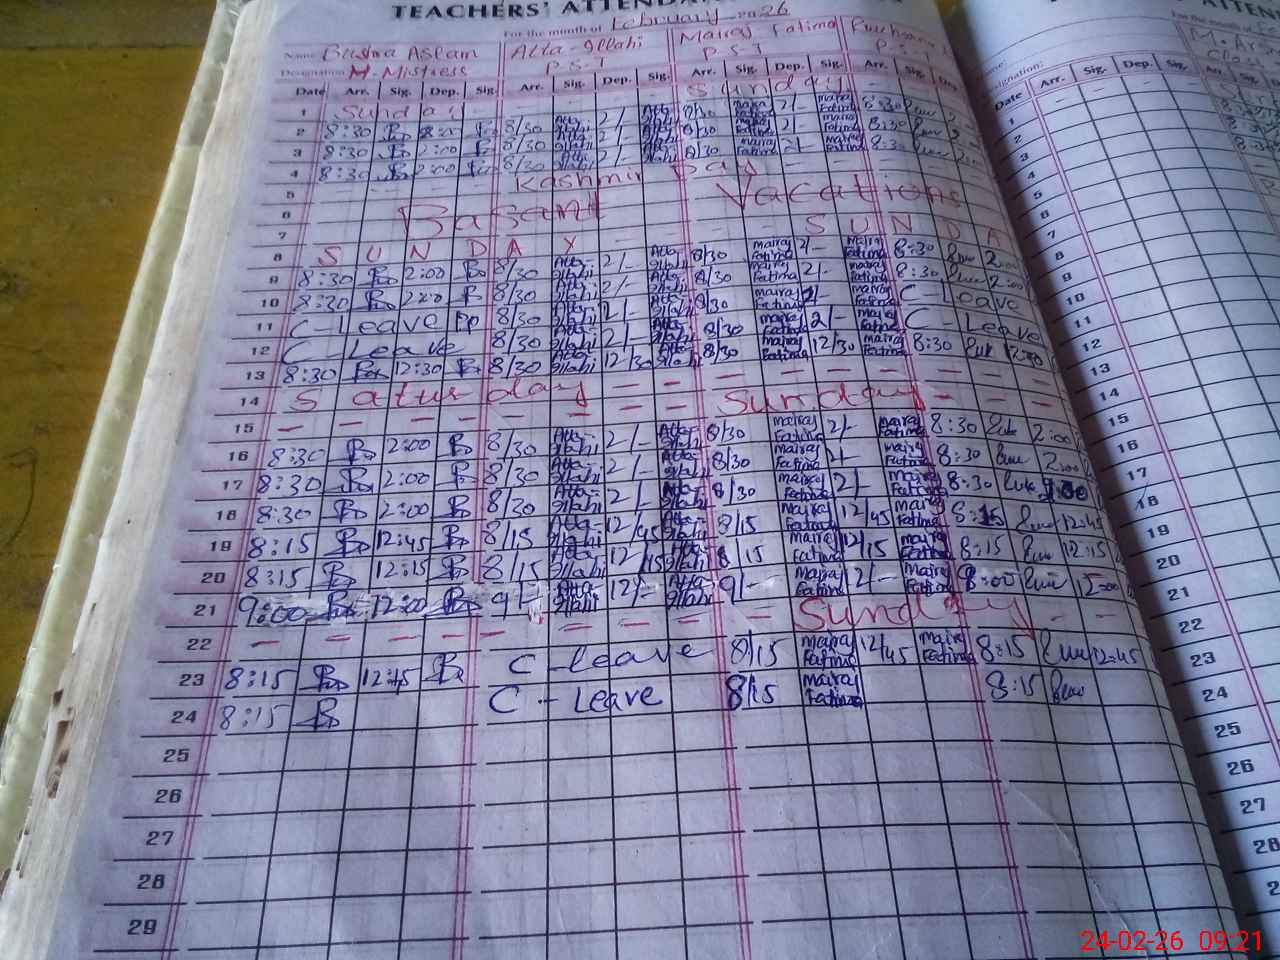 TEACHERS' ATTENDA
For the month of February 2026
Name Bushra Aslam Atta-Illahi Mairaj Fatima
Designation H. Mistress P-S-T P-S-T P-S-T
Date Arr. Sig. Dep. Sig. Arr. Sig. Dep. Sig. Arr. Sig. Dep. Sig. Arr. Sig.
1 Sunday Sunday
2 8:30 8/30 Atta-Illahi 2/- Atta-Illahi 8/30 Maira Fatima 2/- Maira Fatima 8:30
3 8:30 2:00 8/30 Atta-Illahi 2/- Atta-Illahi 8/30 Maira Fatima 2/- Maira Fatima 8:30
4 8:30 2:00 8/30 Atta-Illahi 2/- Atta-Illahi 8/30 Maira Fatima 2/- Maira Fatima 8:30 2:00
5 Kashmir Day
6 Basant Vacations
7
8 S U N D A Y S U N D A
9 8:30 2:00 8/30 Atta-Illahi 2/- Atta-Illahi 8/30 Mairaj Fatima 2/- Mairaj Fatima 8:30 2:00
10 8:30 2:00 8/30 Atta-Illahi 2/- Atta-Illahi 8/30 Mairaj Fatima 2/- Mairaj Fatima 8:30 2:00
11 C-Leave 8/30 Atta-Illahi 2/- Atta-Illahi 8/30 Mairaj Fatima 2/- Mairaj Fatima C-Leave
12 C-Leave 8/30 Atta-Illahi 2/- Atta-Illahi 8/30 Mairaj Fatima 2/- Mairaj Fatima C-Leave
13 8:30 12:30 8/30 Atta-Illahi 12/30 Atta-Illahi 8/30 Mairaj Fatima 12/30 Mairaj Fatima 8:30 12:30
14 Saturday
15 Sunday
16 8:30 2:00 8/30 Atta-Illahi 2/- Atta-Illahi 8/30 Mairaj Fatima 2/- Mairaj Fatima 8:30 2:00
17 8:30 2:00 8/30 Atta-Illahi 2/- Atta-Illahi 8/30 Mairaj Fatima 2/- Mairaj Fatima 8:30 2:00
18 8:30 2:00 8/30 Atta-Illahi 2/- Atta-Illahi 8/30 Mairaj Fatima 2/- Mairaj Fatima 8:30 2:00
19 8:15 12:45 8/15 Atta-Illahi 12/45 Atta-Illahi 8/15 Mairaj Fatima 12/45 Mairaj Fatima 8:15 12:45
20 8:15 12:15 8/15 Atta-Illahi 12/15 Atta-Illahi 8/15 Mairaj Fatima 12/15 Mairaj Fatima 8:15 12:15
21 9:00 12:00 9/- Atta-Illahi 12/- Atta-Illahi 9/- Mairaj Fatima 12/- Mairaj Fatima
22 Sunday
23 8:15 12:45 C-leave 8/15 Mairaj Fatima 12/45 Mairaj Fatima 8:15 12:45
24 8:15 C-Leave 8/15 Mairaj Fatima 8:15
25
26
27
28
29
For the month of
Name:
Designation:
Date Arr. Sig. Dep. Sig. Arr.
1
2
3
4
5
6
7
8
9
10
11
12
13
14
15
16
17
18
19
20
21
22
23
24
25
26
27
28
24-02-26 09:21